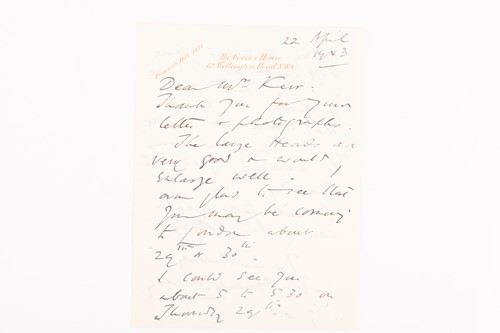 22 April
1943
Primrose Hill 1411
The Corner House
62 Wellington Road N.W.8
Dear Mrs Kerr.
Thank you for your
letter & photographs.
The large Heads are
very good & would
Enlarge well - I
am glad to see that
you may be coming
to London about
29th or 30th -
I could see you
about 5 to 5 30 on
Thursday 29th.